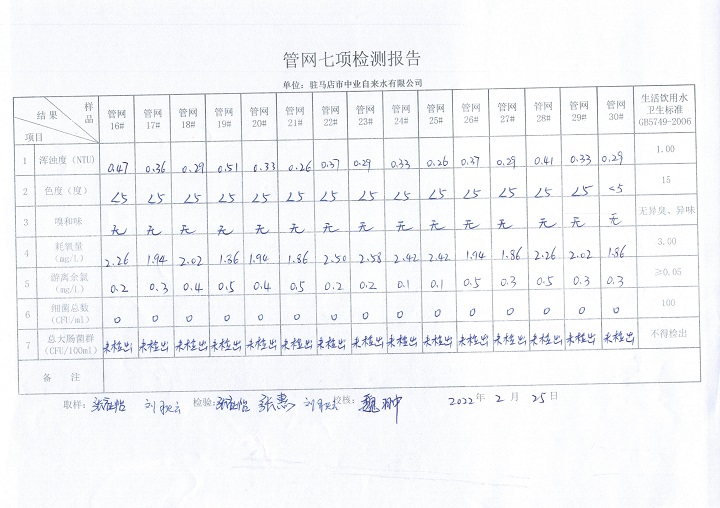 管网七项检测报告
单位：驻马店市中业自来水有限公司
结果 样品 项目 管网16# 管网17# 管网18# 管网19# 管网20# 管网21# 管网22# 管网23# 管网24# 管网25# 管网26# 管网27# 管网28# 管网29# 管网30# 生活饮用水卫生标准GB5749-2006
1 浑浊度（NTU） 0.47 0.36 0.29 0.51 0.33 0.26 0.37 0.29 0.33 0.26 0.37 0.29 0.41 0.33 0.29 1.00
2 色度（度） <5 <5 <5 <5 <5 <5 <5 <5 <5 <5 <5 <5 <5 <5 <5 15
3 嗅和味 无 无 无 无 无 无 无 无 无 无 无 无 无 无 无 无异臭、异味
4 耗氧量（mg/L） 2.26 1.94 2.02 1.86 1.94 1.86 2.50 2.58 2.42 2.42 1.94 1.86 2.26 2.02 1.86 3.00
5 游离余氯（mg/L） 0.2 0.3 0.4 0.5 0.4 0.5 0.2 0.2 0.1 0.1 0.5 0.3 0.5 0.3 0.3 ≥0.05
6 细菌总数（CFU/ml） 0 0 0 0 0 0 0 0 0 0 0 0 0 0 0 100
7 总大肠菌群（CFU/100ml） 未检出 未检出 未检出 未检出 未检出 未检出 未检出 未检出 未检出 未检出 未检出 未检出 未检出 未检出 未检出 不得检出
备 注
取样： 检验： 张惠 校核： 2022年 2月 25日